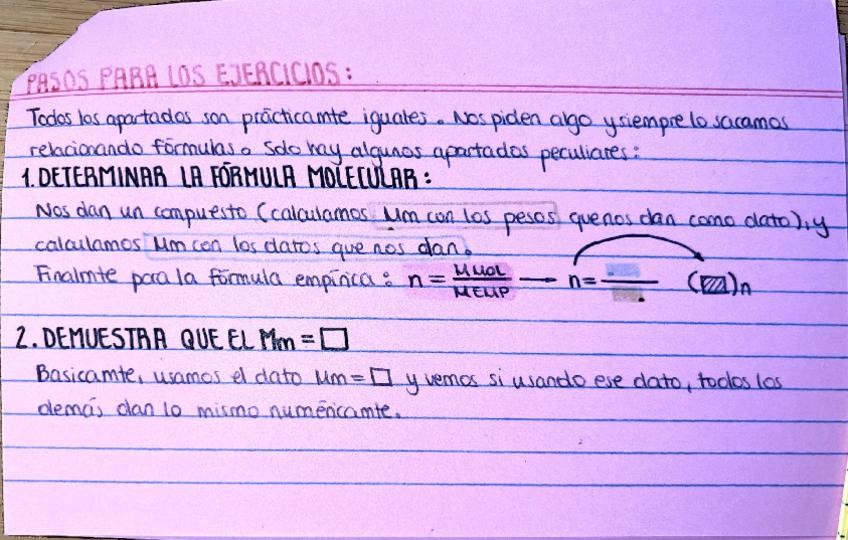 PASOS PARA LOS EJERCICIOS:
Todos los apartados son prácticamte iguales. Nos piden algo y siempre lo sacamos
relacionando fórmulas. Solo hay algunos apartados peculiares:
1. DETERMINAR LA FÓRMULA MOLECULAR:
Nos dan un compuesto (calculamos Mm con los pesos que nos dan como dato), y
calculamos Mm con los datos que nos dan.
Finalmte para la fórmula empírica: n = MMOL / MEMP → n = — (▨)n
2. DEMUESTRA QUE EL Mm = □
Basicamte, usamos el dato Mm = □ y vemos si usando ese dato, todos los
demás dan lo mismo numéricamte.